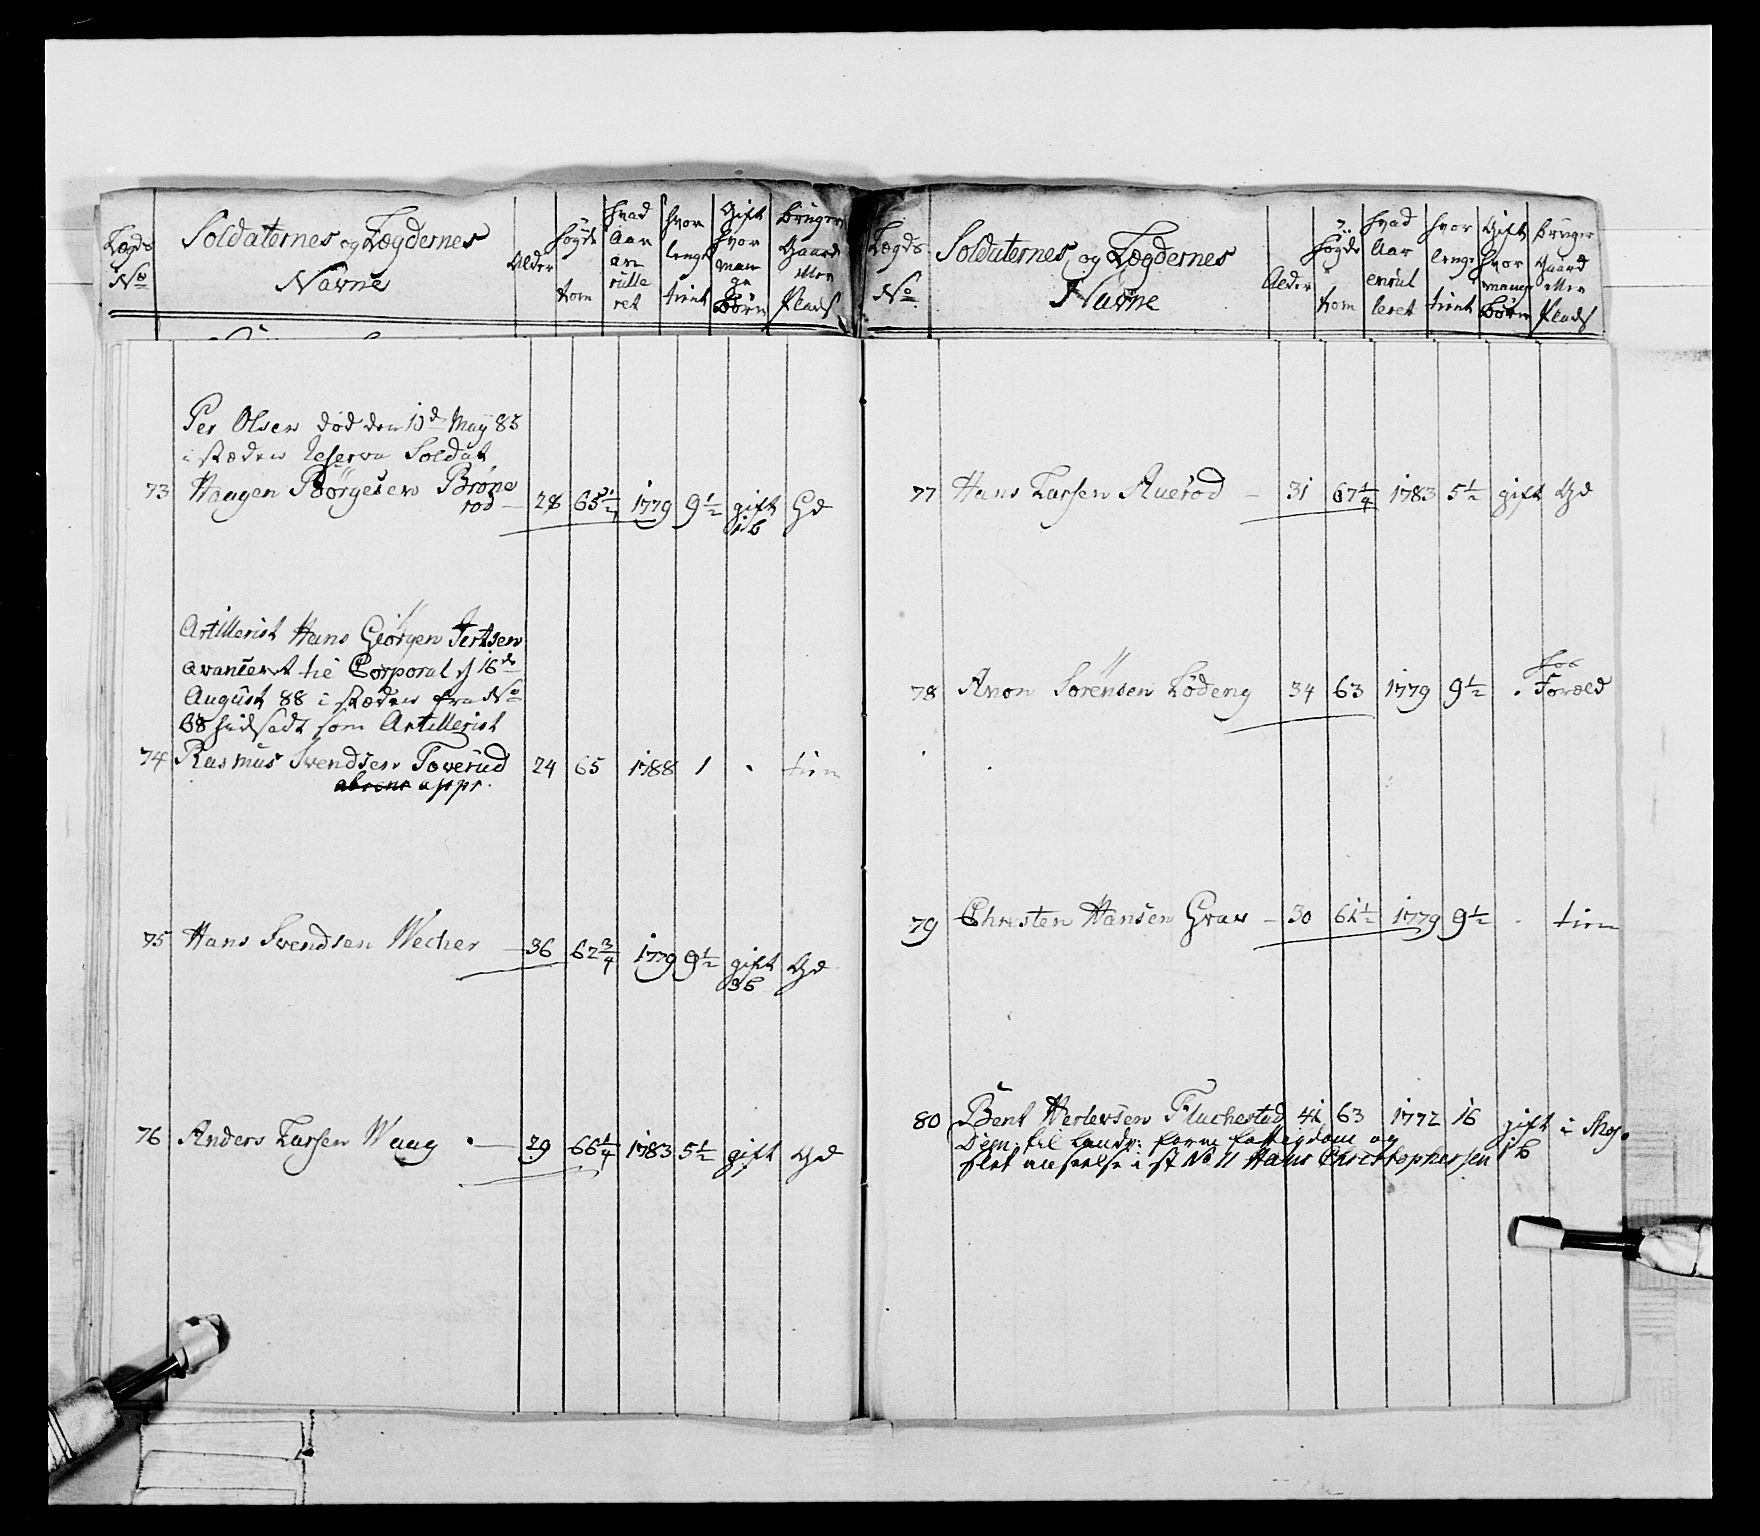 Lægds No Soldaternes og Lægdernes Navne Alder høyde tom hvad Aar en rulle ret hvor lenge tient Gift hvor man ge Børn bruger Gaard eller Plads
Per Olsen død den 10d May 85
i stæden Reserve Soldat
73 Haagen Börgesen Bröne
rod — 28 65 1/2 1779 9 1/2 gift Gd
1 b
Artillerist Hans Giörgen Jertsen
avanceret til Corporal d 16de
August 88 i stæden fra No
68 hidsadt som Artillerist
74 Rasmus Svendsen Toverud 24 65 1788 1 . tien
appr.
75 Hans Svendsen Wecher — 36 62 3/4 1779 9 1/2 gift Gd
3 b
76 Anders Larsen Waag — 29 66 1/4 1783 5 1/2 gift Gd
Lægds No Soldaternes og Lægdernes Navne Alder høyde tom hvad Aar enrul leret hvor lenge tient Gift hvor mange Børn bruger Gaard eller Plads
77 Hans Larsen Auerod — 31 67 1/4 1783 5 1/2 gift Gd
hos
78 Amon Sörensen Lödeng 34 63 1779 9 1/2 . Foræld
79 Christen Hansen Grav — 30 1779 9 1/2 . tien
80 Bent Herlevsen Fluchestad 41 63 1772 16 gift i Mos.
1 b
til landv: og
slet anseelse i st No 11 Hans Christophersen